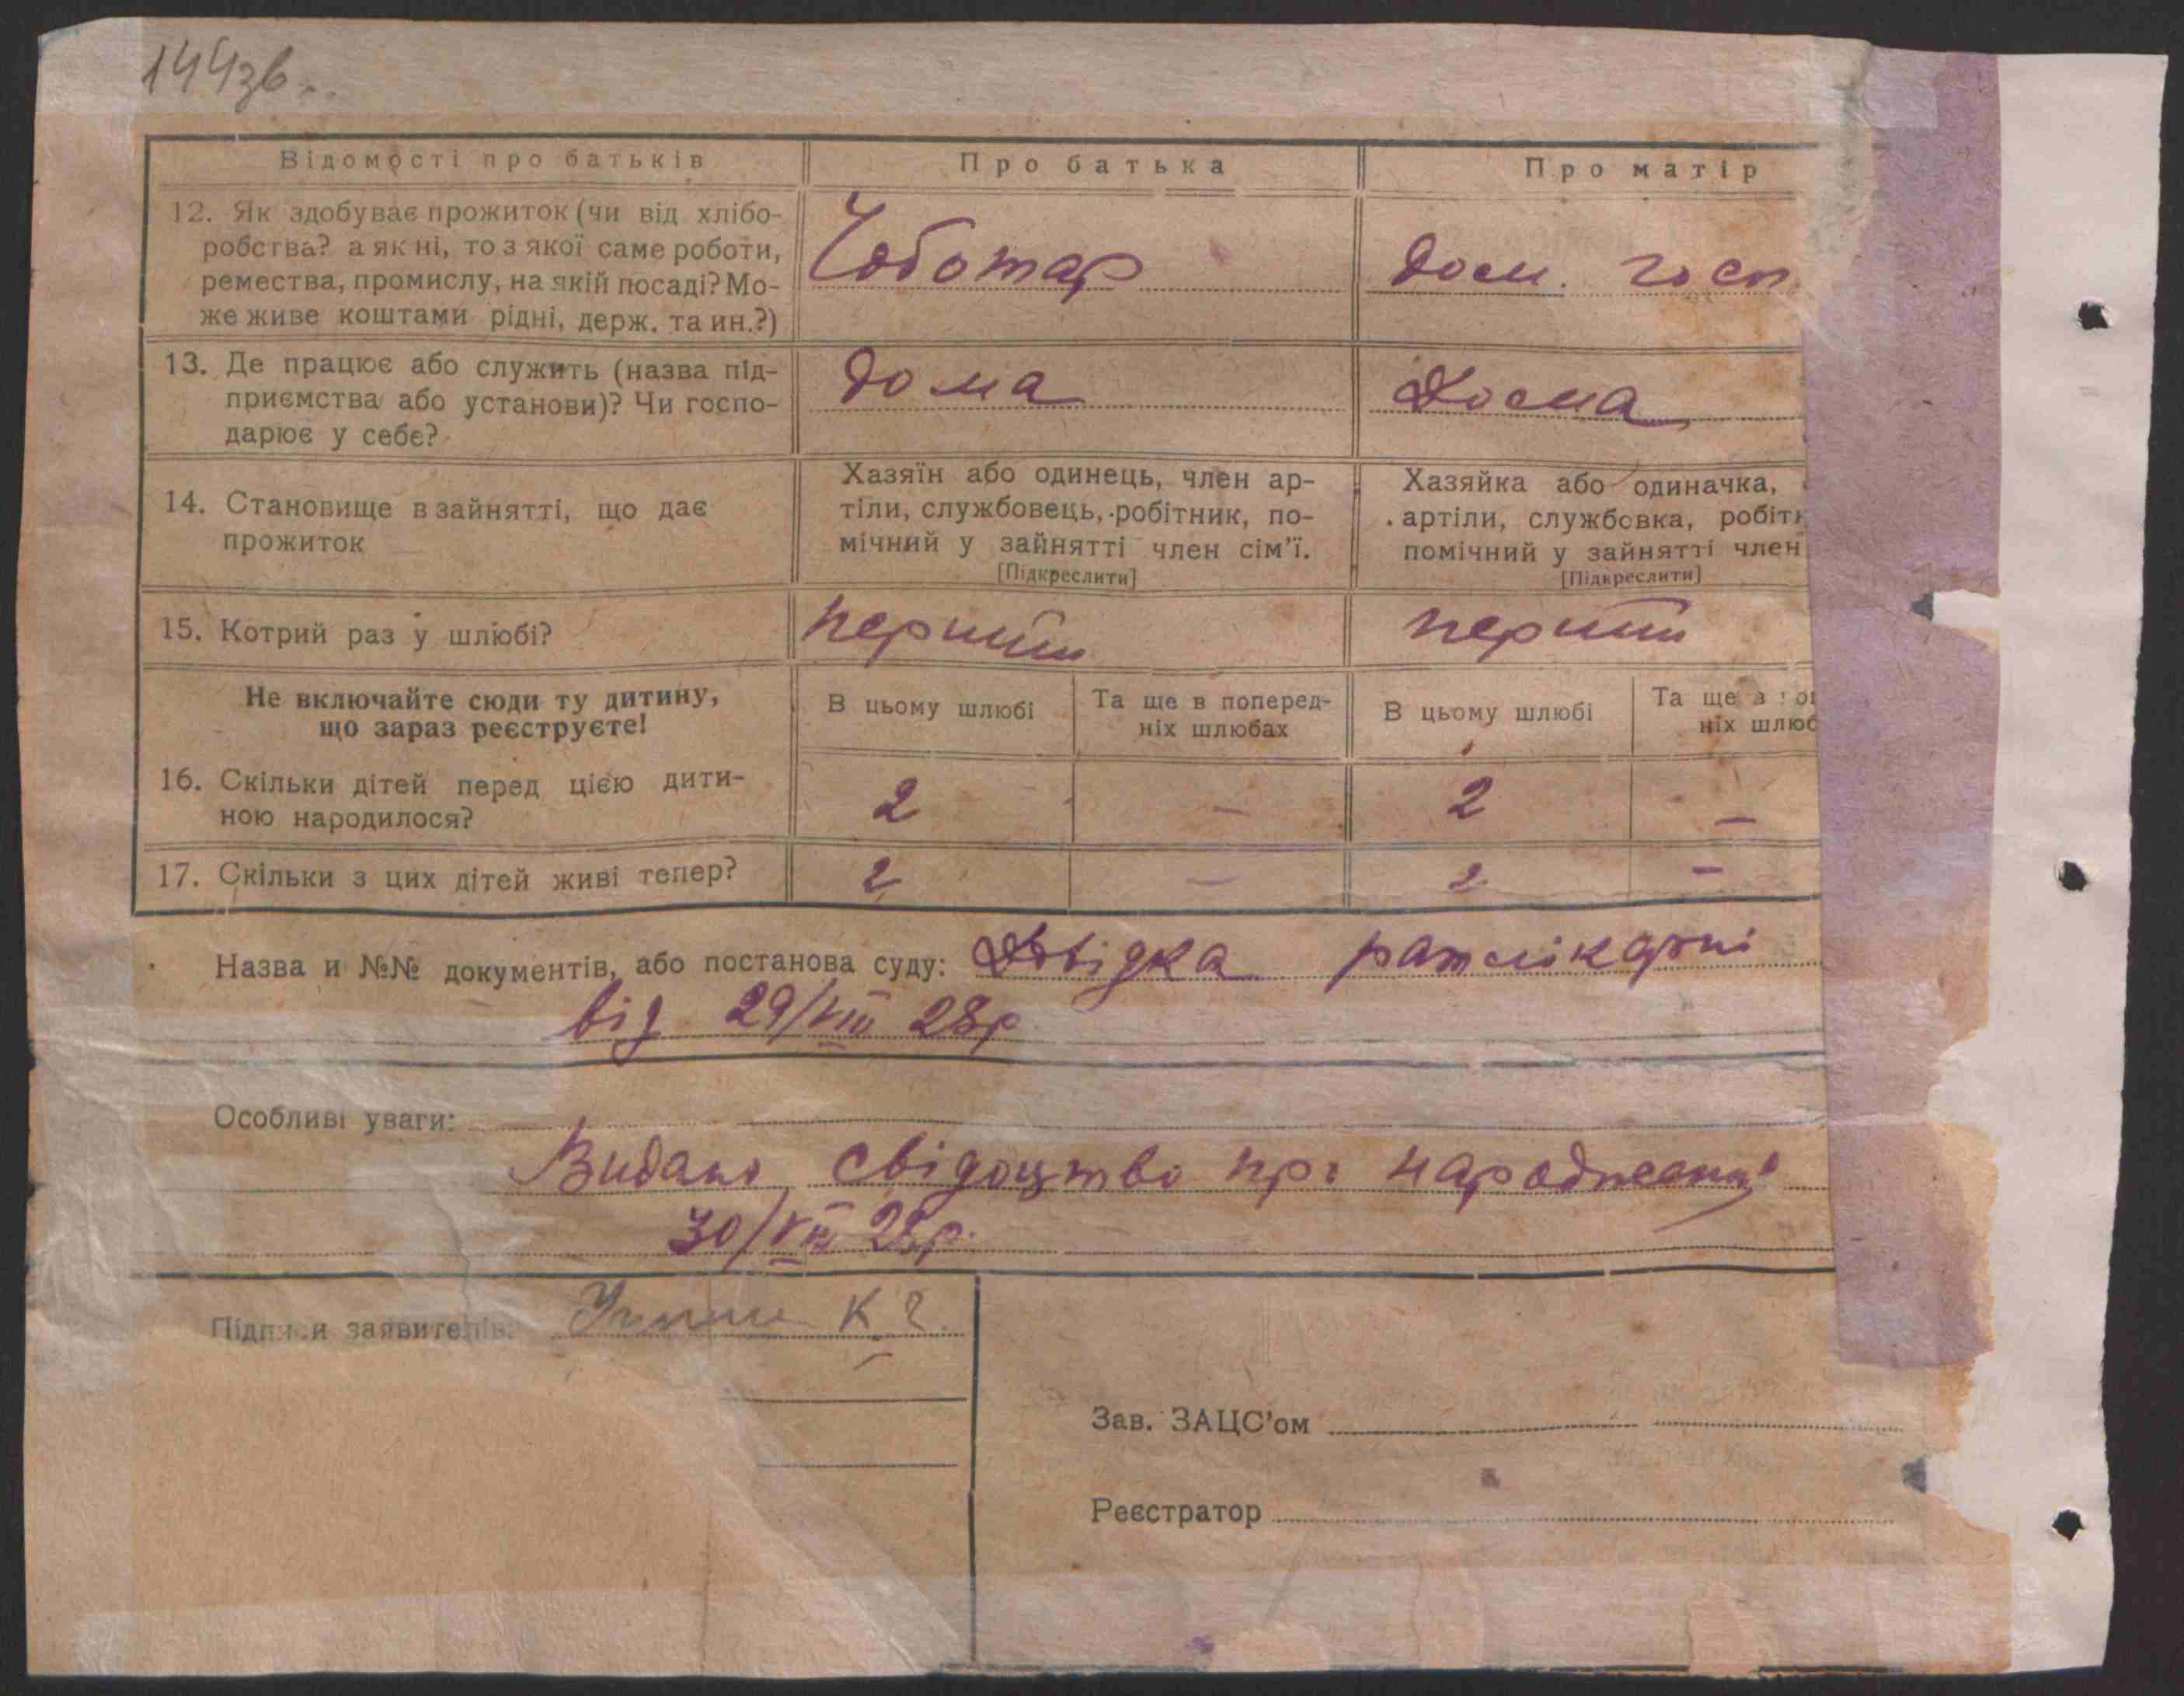 144зв.
Відомості про батьків
Про батька
Про матір
12. Як здобуває прожиток (чи від хлібо-
робства? а як ні, то з якої саме роботи,
ремества, промислу, на якій посаді? Мо-
же живе коштами рідні, держ. та ин.?)
Чоботар
дом. госп.
13. Де працює або служить (назва під-
приємства або установи)? Чи госпо-
дарює у себе?
дома
Дома
14. Становище в зайнятті, що дає
прожиток
Хазяїн або одинець, член ар-
тіли, службовець, робітник, по-
мічний у зайнятті член сім'ї.
[Підкреслити]
Хазяйка або одиначка,
артіли, службовка, робітн
помічний у зайнятті член
[Підкреслити]
15. Котрий раз у шлюбі?
перший
перший
Не включайте сюди ту дитину,
що зараз реєструєте!
В цьому шлюбі
Та ще в поперед-
ніх шлюбах
В цьому шлюбі
Та ще в по
ніх шлюб
16. Скільки дітей перед цією дити-
ною народилося?
2
–
2
–
17. Скільки з цих дітей живі тепер?
2
–
2
–
Назва и №№ документів, або постанова суду: Довідка
від 29/VIII 28р
Особливі уваги:
Видано свідоцтво про народження
30/VIII 28р.
Підписи заявителів:
Зав. ЗАЦС'ом
Реєстратор